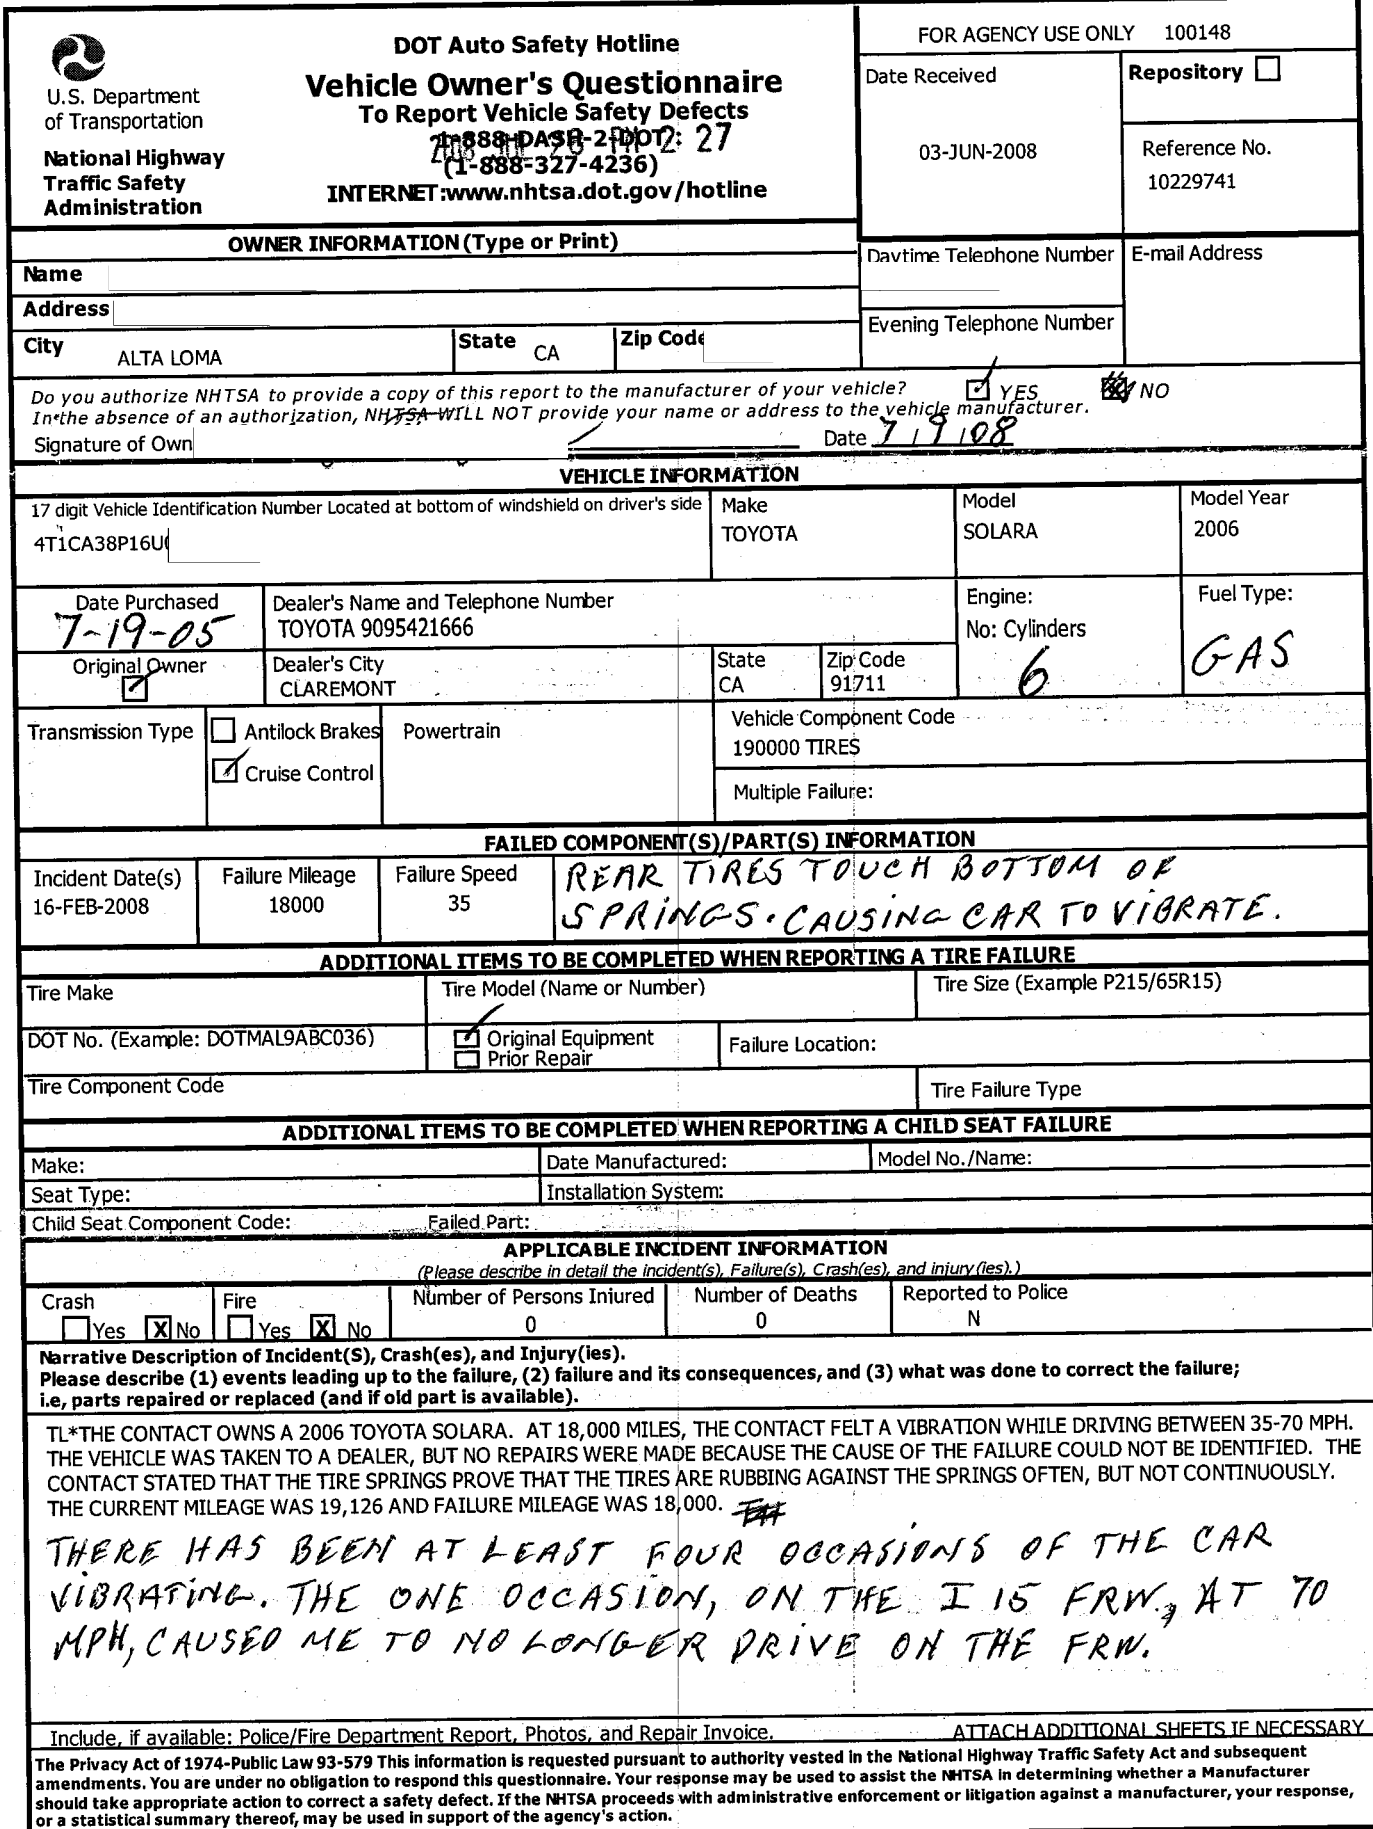 FOR AGENCY USE ONLY 100148
DOT Auto Safety Hotline
Vehicle Owner's Questionnaire
To Report Vehicle Safety Defects
1-888-DASH-2-DOT
(1-888-327-4236)
INTERNET:www.nhtsa.dot.gov/hotline
U.S. Department
of Transportation
National Highway
Traffic Safety
Administration
Date Received
03-JUN-2008
Repository
Reference No.
10229741
OWNER INFORMATION (Type or Print)
Name
Address
City ALTA LOMA State CA Zip Code
Daytime Telephone Number
E-mail Address
Evening Telephone Number
Do you authorize NHTSA to provide a copy of this report to the manufacturer of your vehicle? YES NO
In the absence of an authorization, NHTSA WILL NOT provide your name or address to the vehicle manufacturer.
Signature of Own Date 7/9/08
VEHICLE INFORMATION
17 digit Vehicle Identification Number Located at bottom of windshield on driver's side
4T1CA38P16U
Make
TOYOTA
Model
SOLARA
Model Year
2006
Date Purchased
7-19-05
Original Owner
Dealer's Name and Telephone Number
TOYOTA 9095421666
Dealer's City
CLAREMONT
State
CA
Zip Code
91711
Engine:
No: Cylinders
6
Fuel Type:
GAS
Transmission Type
Antilock Brakes
Cruise Control
Powertrain
Vehicle Component Code
190000 TIRES
Multiple Failure:
FAILED COMPONENT(S)/PART(S) INFORMATION
Incident Date(s)
16-FEB-2008
Failure Mileage
18000
Failure Speed
35
REAR TIRES TOUCH BOTTOM OF
SPRINGS. CAUSING CAR TO VIBRATE.
ADDITIONAL ITEMS TO BE COMPLETED WHEN REPORTING A TIRE FAILURE
Tire Make
Tire Model (Name or Number)
Tire Size (Example P215/65R15)
DOT No. (Example: DOTMAL9ABC036)
Original Equipment
Prior Repair
Failure Location:
Tire Component Code
Tire Failure Type
ADDITIONAL ITEMS TO BE COMPLETED WHEN REPORTING A CHILD SEAT FAILURE
Make:
Date Manufactured:
Model No./Name:
Seat Type:
Installation System:
Child Seat Component Code:
Failed Part:
APPLICABLE INCIDENT INFORMATION
(Please describe in detail the incident(s), Failure(s), Crash(es), and injury(ies).)
Crash
Yes X No
Fire
Yes X No
Number of Persons Injured
0
Number of Deaths
0
Reported to Police
N
Narrative Description of Incident(S), Crash(es), and Injury(ies).
Please describe (1) events leading up to the failure, (2) failure and its consequences, and (3) what was done to correct the failure;
i.e, parts repaired or replaced (and if old part is available).
TL*THE CONTACT OWNS A 2006 TOYOTA SOLARA. AT 18,000 MILES, THE CONTACT FELT A VIBRATION WHILE DRIVING BETWEEN 35-70 MPH.
THE VEHICLE WAS TAKEN TO A DEALER, BUT NO REPAIRS WERE MADE BECAUSE THE CAUSE OF THE FAILURE COULD NOT BE IDENTIFIED. THE
CONTACT STATED THAT THE TIRE SPRINGS PROVE THAT THE TIRES ARE RUBBING AGAINST THE SPRINGS OFTEN, BUT NOT CONTINUOUSLY.
THE CURRENT MILEAGE WAS 19,126 AND FAILURE MILEAGE WAS 18,000.
THERE HAS BEEN AT LEAST FOUR OCCASIONS OF THE CAR
VIBRATING. THE ONE OCCASION, ON THE I 15 FRW., AT 70
MPH, CAUSED ME TO NO LONGER DRIVE ON THE FRW.
Include, if available: Police/Fire Department Report, Photos, and Repair Invoice. ATTACH ADDITIONAL SHEETS IF NECESSARY
The Privacy Act of 1974-Public Law 93-579 This information is requested pursuant to authority vested in the National Highway Traffic Safety Act and subsequent
amendments. You are under no obligation to respond this questionnaire. Your response may be used to assist the NHTSA in determining whether a Manufacturer
should take appropriate action to correct a safety defect. If the NHTSA proceeds with administrative enforcement or litigation against a manufacturer, your response,
or a statistical summary thereof, may be used in support of the agency's action.